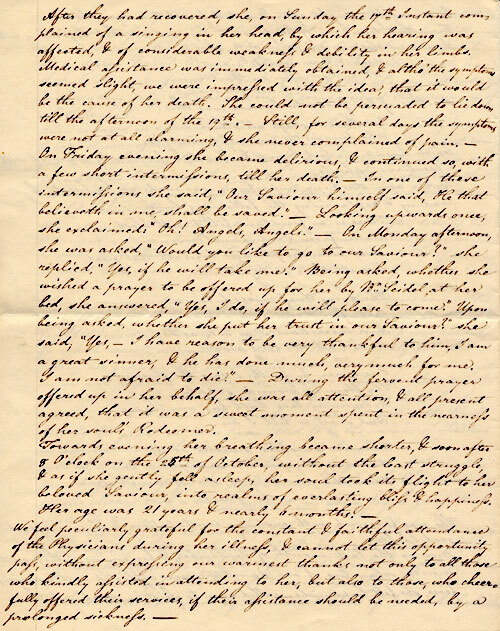 After they had recovered, she, on Sunday the 17th Instant com-
plained of a singing in her head, by which her hearing was
affected, & of considerable weakness & debility in her limbs.
Medical assistance was immediately obtained, & altho' the symptoms
seemed slight, we were impressed with the idea, that it would
be the cause of her death. She could not be persuaded to lie down
till the afternoon of the 19th. — Still, for several days the symptoms
were not at all alarming, & she never complained of pain. —
On Friday evening she became delirious, & continued so, with
a few short intermissions, till her death. — In one of these
intermissions she said, "Our Saviour himself said, He that
believeth in me, shall be saved." — Looking upwards once,
she exclaimed, "Oh! Angels, Angels." — On Monday afternoon,
she was asked, "Would you like to go to our Saviour?" she
replied, "Yes, if he will take me." Being asked, whether she
wished a prayer to be offered up for her by Br. Seidel, at her
bed, she answered "Yes, I do, if he will please to come." Upon
being asked, whether she put her trust in our Saviour?" she
said, "Yes, — I have reason to be very thankful to him, I am
a great sinner, & he has done much, very much for me.
I am not afraid to die." — During the fervent prayer
offered up in her behalf, she was all attention, & all present
agreed, that it was a sweet moment spent in the nearness
of her souls Redeemer.
Towards evening her breathing became shorter, & soon after
8 O'clock on the 25th of October, without the least struggle,
& as if she gently fell asleep, her soul took its flight to her
beloved Saviour, into realms of everlasting bliss & happiness.
Her age was 21 years & nearly 6 months. —
We feel peculiarly grateful for the constant & faithful attendance
of the Physicians during her illness, & cannot let this opportunity
pass, without expressing our warmest thanks not only to all those
who kindly assisted in attending to her, but also to those, who cheer-
fully offered their services, if their assistance should be needed, by a
prolonged sickness. —